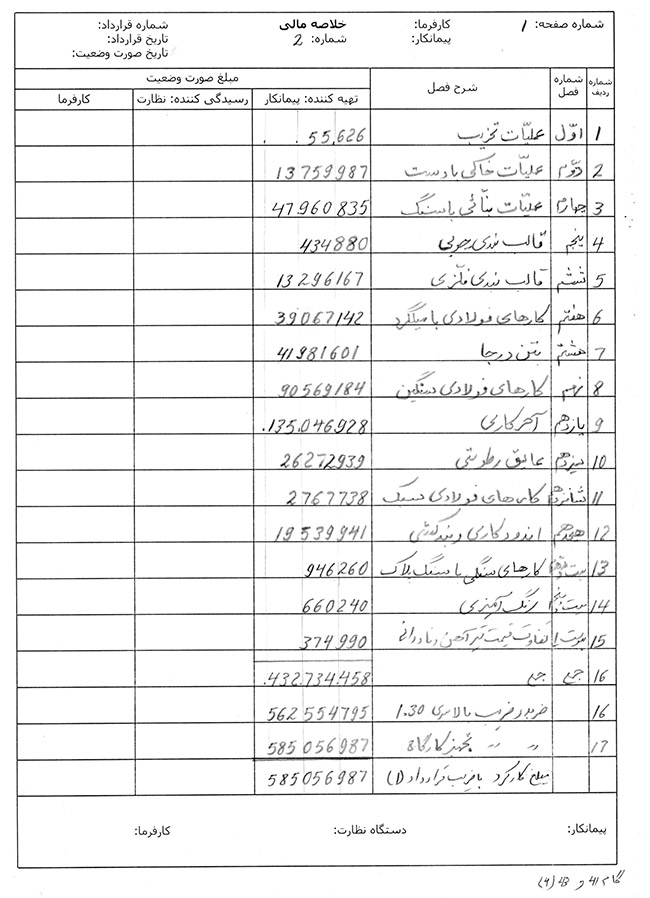 شماره صفحه: 1 کارفرما: خلاصه مالی شماره قرارداد:
پیمانکار: شماره: 2 تاریخ قرارداد:
تاریخ صورت وضعیت:
شماره ردیف شماره فصل شرح فصل مبلغ صورت وضعیت
تهیه کننده: پیمانکار رسیدگی کننده: نظارت کارفرما
1 اوّل عملیّات تخریب 55,626
2 دوّم عملیّات خاکی با دست 13759987
3 چهارم عملیّات بنّائی با سنگ 47960835
4 پنجم قالب بندی چوبی 434880
5 ششم قالب بندی فلزّی 13296167
6 هفتم کارهای فولادی با میلگرد 39067142
7 هشتم بتن درجا 41981601
8 نهم کارهای فولادی سنگین 90569184
9 یازدهم آجرکاری 135,046,928
10 سیزدهم عایق رطوبتی 26272939
11 شانزدهم کارهای فولادی سبک 2767738
12 هیجدهم اندودکاری و بندکشی 19539941
13 کارهای سنگی با سنگ پلاک 946260
14 بیست و پنج رنگ آمیزی 660240
15 تفاوت قیمت تیرآهن و ناودانی 374990
16 جمع جمع 432,734,458
16 ضربدر ضریب بالاسری 1.30 562554795
17 〃 〃 تجهیز کارگاه 585056987
مبلغ کارکرد با ضریب قرارداد (1) 585056987
پیمانکار: دستگاه نظارت: کارفرما: